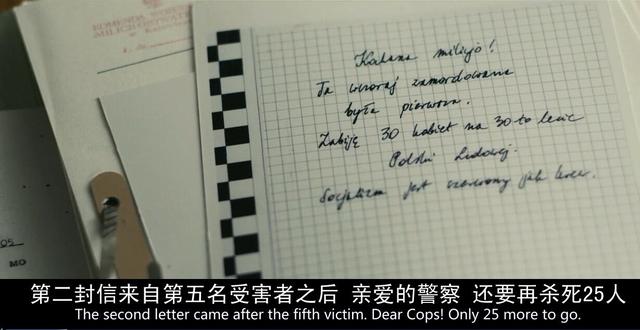 KOMENDA WOJEW
MILICJI OBYWATE
Kochana milicjo!
Ta wczoraj zamordowana
była pierwsza.
Zabiję 30 kobiet na 30-to lecie
Polski Ludowej.
Socjalizm jest czerwony jak krew.
MO
第二封信来自第五名受害者之后 亲爱的警察 还要再杀死25人
The second letter came after the fifth victim. Dear Cops! Only 25 more to go.